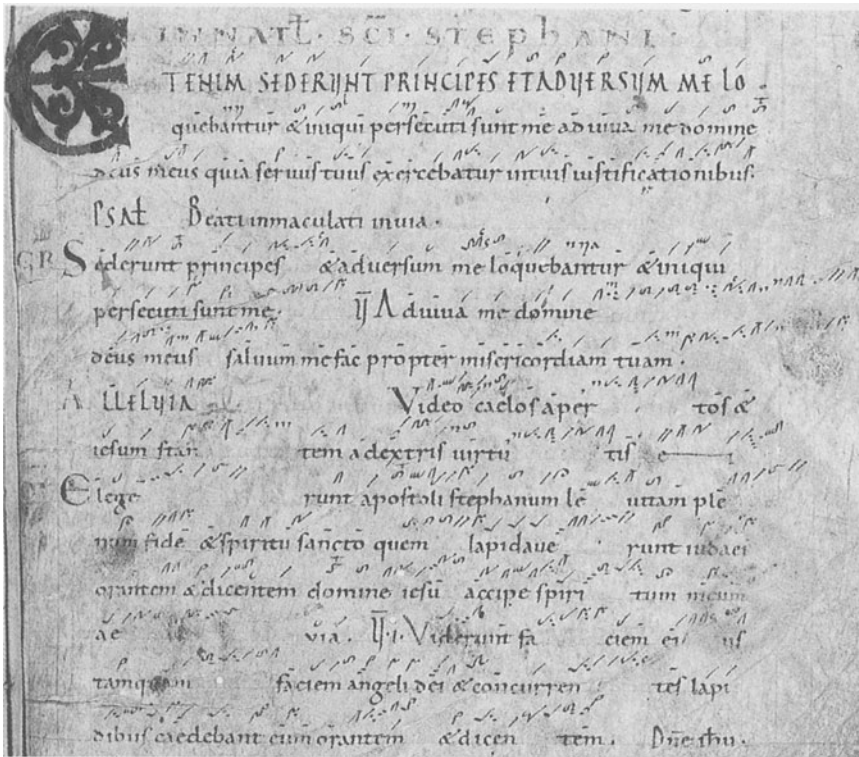 IN NATL̄. SC̄I. STEPHANI.
ETENIM SEDERUNT PRINCIPES ET ADUERSUM ME LO
quebantur & iniqui persecuti sunt me adiuua me domine
deus meus quia seruus tuus exercebatur in tuis iustificationibus.
PSAL̄ Beati inmaculati in uia.
GR Sederunt principes & aduersum me loquebantur & iniqui
persecuti sunt me. V̄ Adiuua me domine
deus meus saluum me fac propter misericordiam tuam.
ALLELUIA Video caelos aper tos &
iesum stan tem ad extris uirtu tis e
Elege runt apostoli stephanum le uitam ple
num fide & spiritu sancto quem lapidaue runt iudaei
orantem & dicentem domine iesu accipe spiri tum meum
ae uia. V̄.i. Viderunt fa ciem ei us
tamquam faciem angeli dei & concurren tes lapi
dibus caedebant eum orantem & dicen tem. Dn̄e